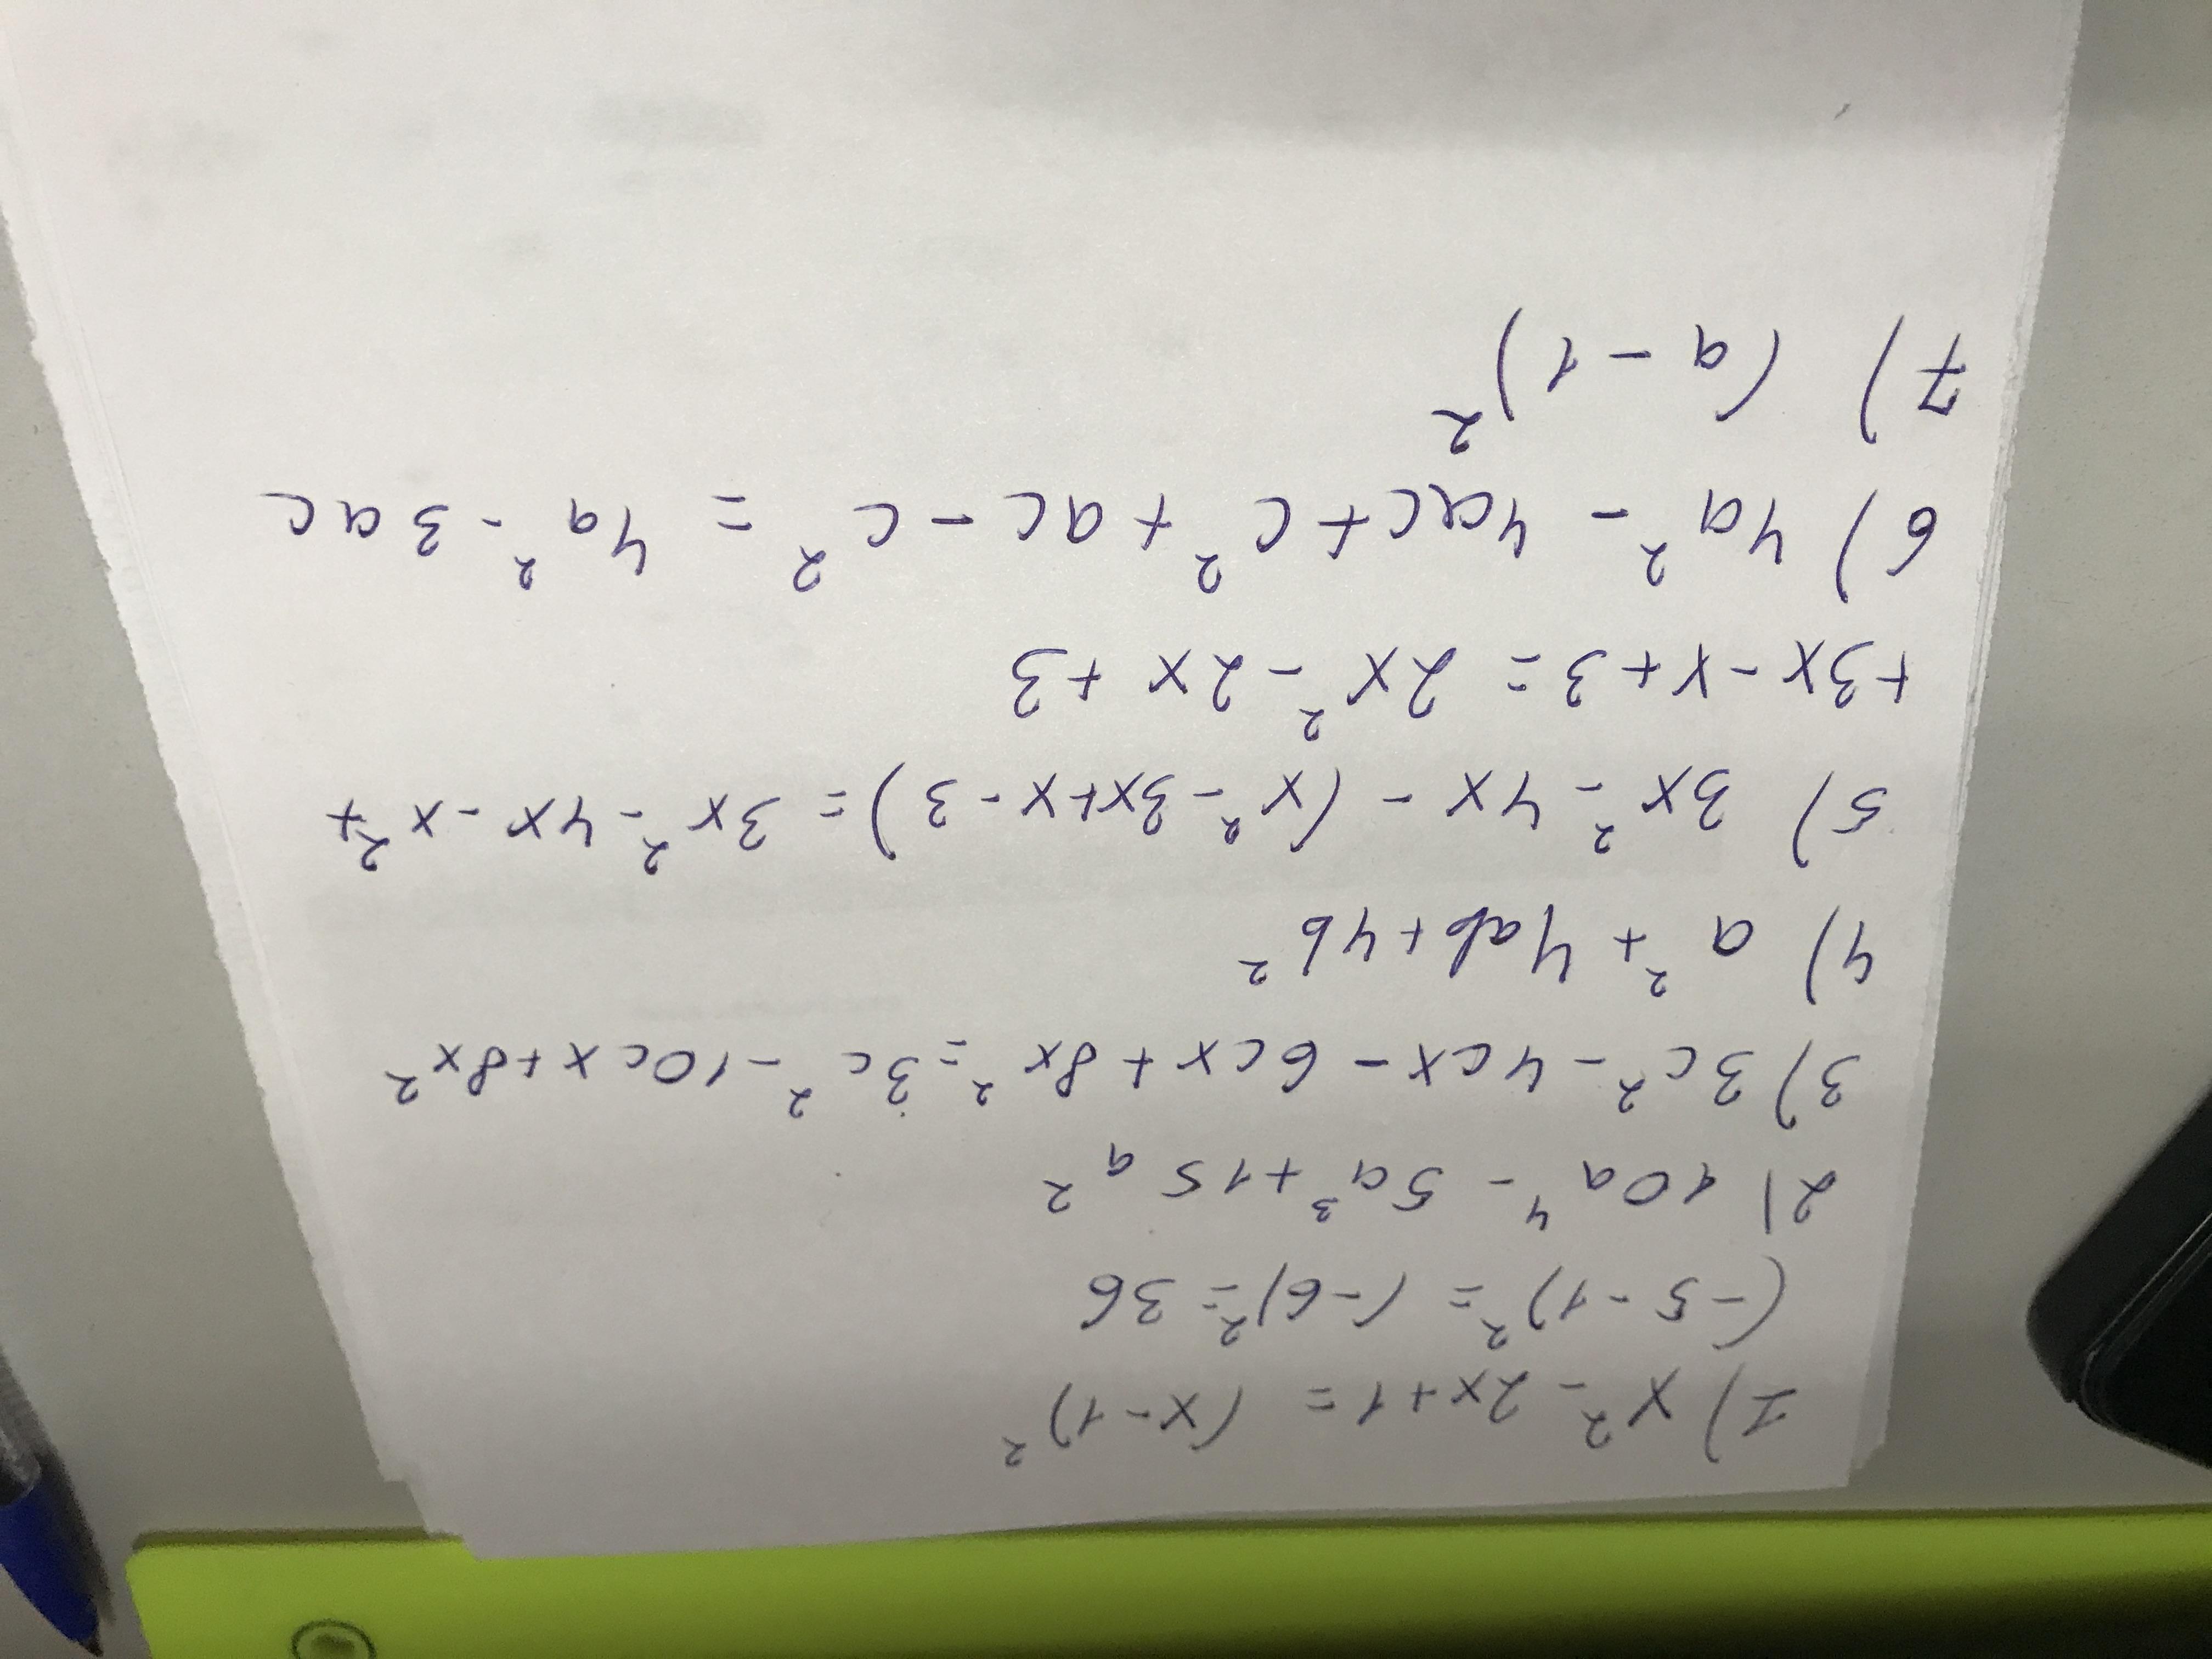 1) x² - 2x + 1 = (x - 1)²
(-5 - 1)² = (-6)² = 36
2) 10a⁴ - 5a³ + 15a²
3) 3c² - 4cx - 6cx + 8x² = 3c² - 10cx + 8x²
4) a² + 4ab + 4b²
5) 3x² - 4x - (x² - 3x + x - 3) = 3x² - 4x - x² +
+ 3x - x + 3 = 2x² - 2x + 3
6) 4a² - 4ac + c² + ac - c² = 4a² - 3ac
7) (a - 1)²